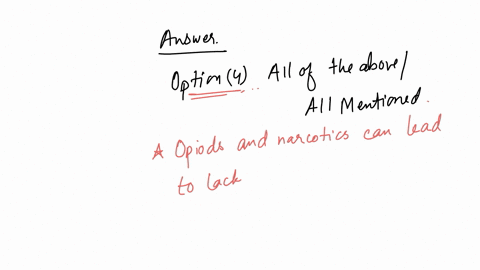 Answer.
Option (4) .. All of the above/
All Mentioned.
* Opiods and narcotics can lead
to lack